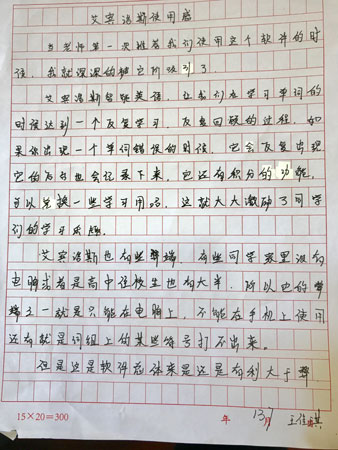 艾宾浩斯使用感
当老师第一次推荐我们使用这个软件的时
候，我就深深的被它所吸引了。
艾宾浩斯智能英语，让我们在学习单词的
时候达到一个反复学习，反复回顾的过程，如
果你出现一个单词错误的时候，它会反复出现
它的后台也会记录下来，它还有积分的功能，
可以兑换一些学习用品，这就大大激励了同学
们的学习乐趣。
艾宾浩斯也有些弊端，有些同学家里没有
电脑或者是高中住校生也有大半，所以它的弊
端之一就是只能在电脑上，不能在手机上使用
还有就是词组上的某些符号打不出来。
但是这是软件总体来是还是有利大于弊。
15×20=300
年 13月 王佳琪